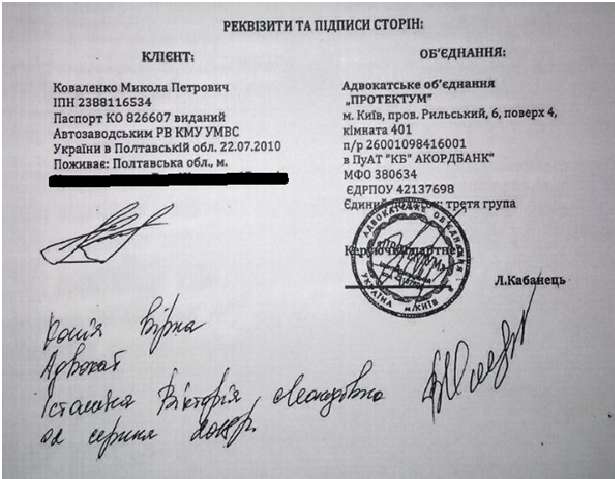 РЕКВІЗИТИ ТА ПІДПИСИ СТОРІН:
КЛІЄНТ:
Коваленко Микола Петрович
ІПН 2388116534
Паспорт КО 826607 виданий
Автозаводським РВ КМУ УМВС
України в Полтавській обл. 22.07.2010
Поживає: Полтавська обл., м.
ОБ'ЄДНАННЯ:
Адвокатське об'єднання
„ПРОТЕКТУМ"
м. Київ, пров. Рильський, 6, поверх 4,
кімната 401
п/р 26001098416001
в ПуАТ "КБ" АКОРДБАНК"
МФО 380634
ЄДРПОУ 42137698
Єдиний податок: третя група
Керуючий партнер
Л.Кабанець
АДВОКАТСЬКЕ ОБ'ЄДНАННЯ
УКРАЇНА м.КИЇВ
Копія вірна
Адвокат
Вікторія
02 серпня